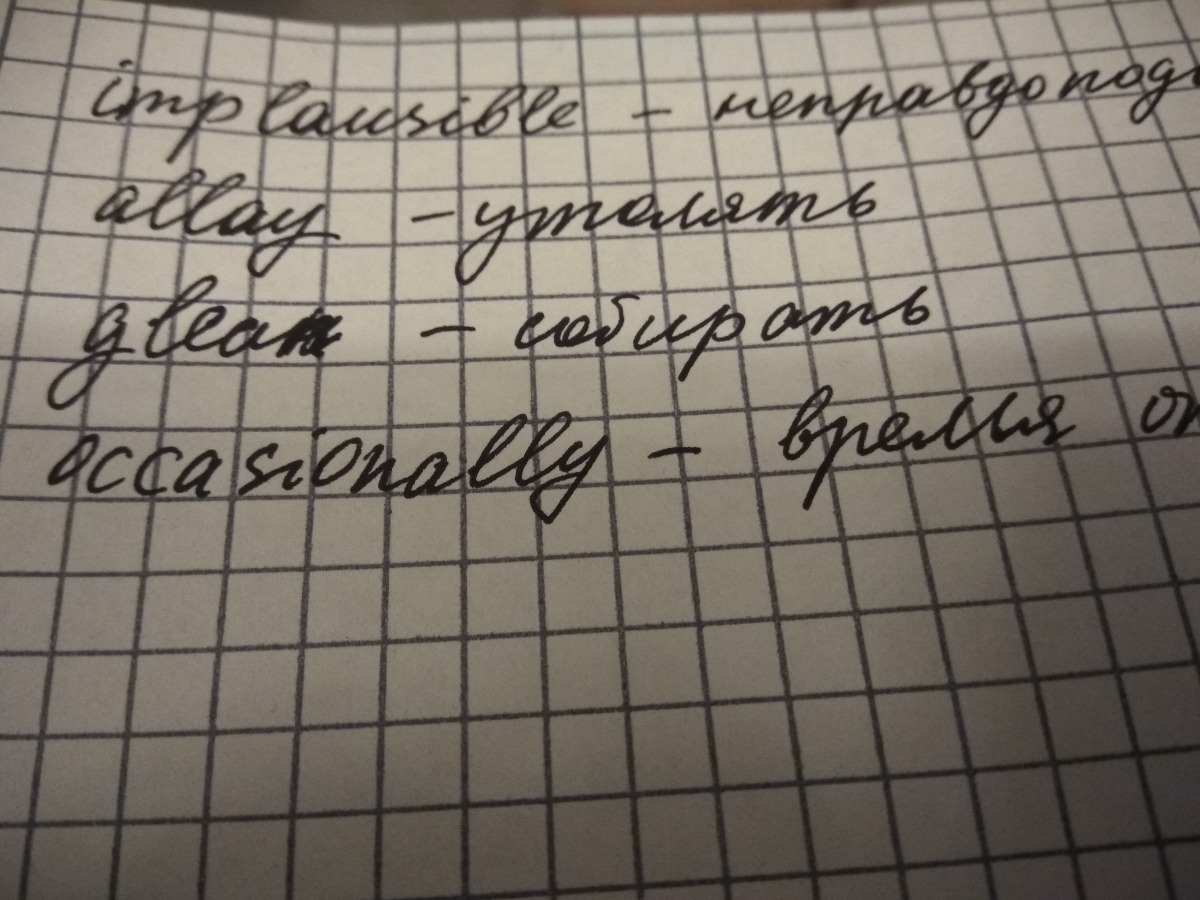 implausible - неправдопод
allay - утолять
glean - собирать
occasionally - время от